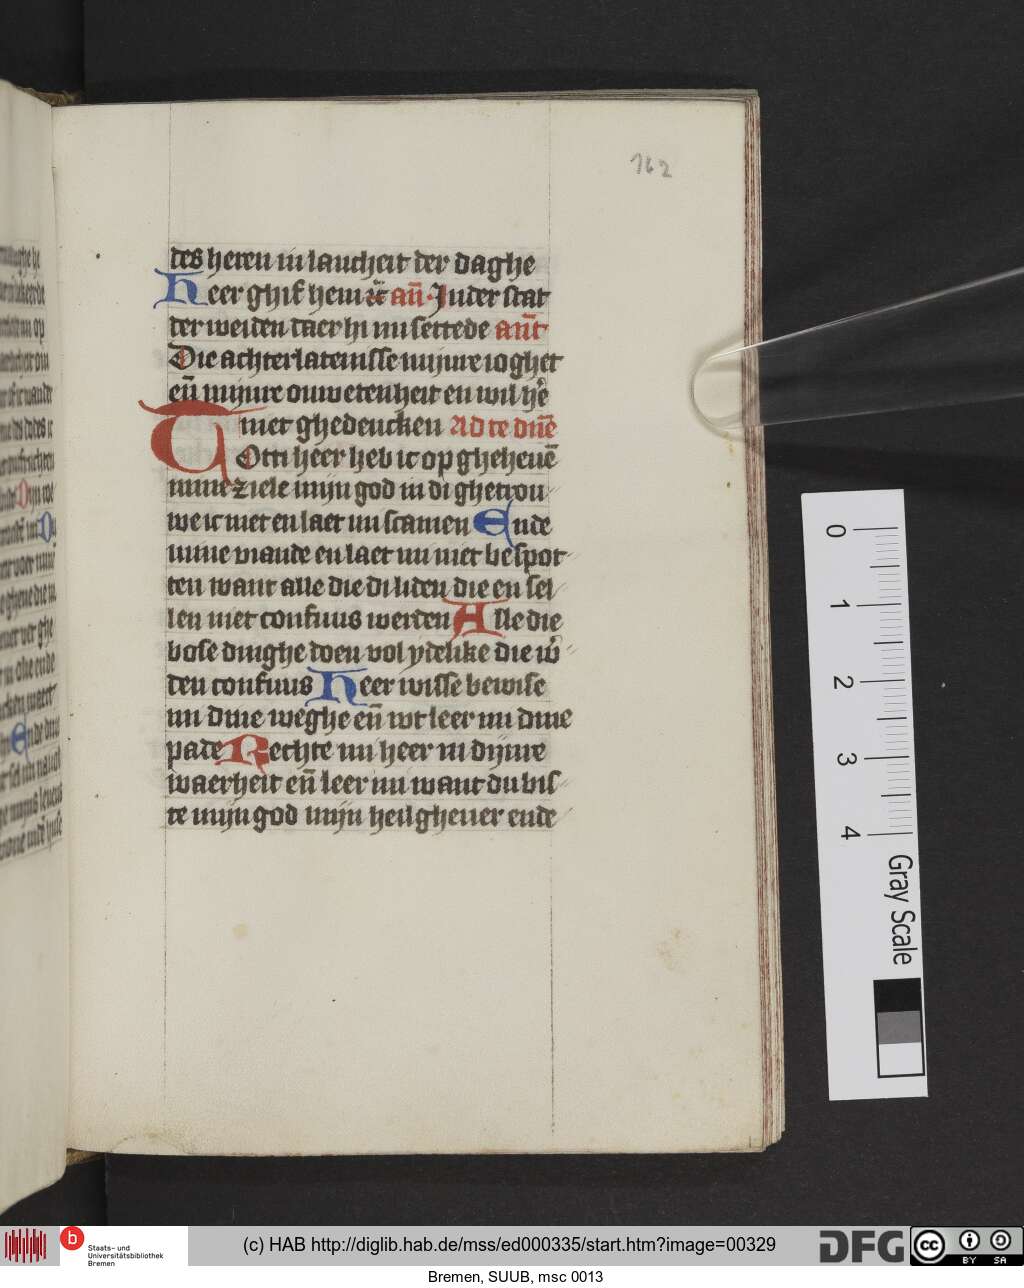 162
des heren in lancheit der daghe
Heer ghif hem etc̄ an̄ · In der stat
der weiden daer hi mi settede an̄t
Die achterlatenisse mijnre ioghet
en̄ mijnre onwetenheit en wil hē
niet ghedencken Ad te dn̄e
Totti heer heb ic op gheheuē
mine ziele mijn god in di ghetrou
we ic niet en laet mi scamen Ende
mine viande en laet mi niet bespot
ten want alle die di liden die en sel
len niet confuus werden Alle die
bose dinghe doen vol ydelike die w̄
den confuus Heer wisse bewise
mi dine weghe en̄ wt leer mi dine
pade Rechte mi heer in dijnre
waerheit en̄ leer mi want du bis
te mijn god mijn heilgheuer ende
0
1
2
3
4
Gray Scale
b
Staats- und
Universitätsbibliothek
Bremen
(c) HAB http://diglib.hab.de/mss/ed000335/start.htm?image=00329
DFG
cc
BY SA
Bremen, SUUB, msc 0013